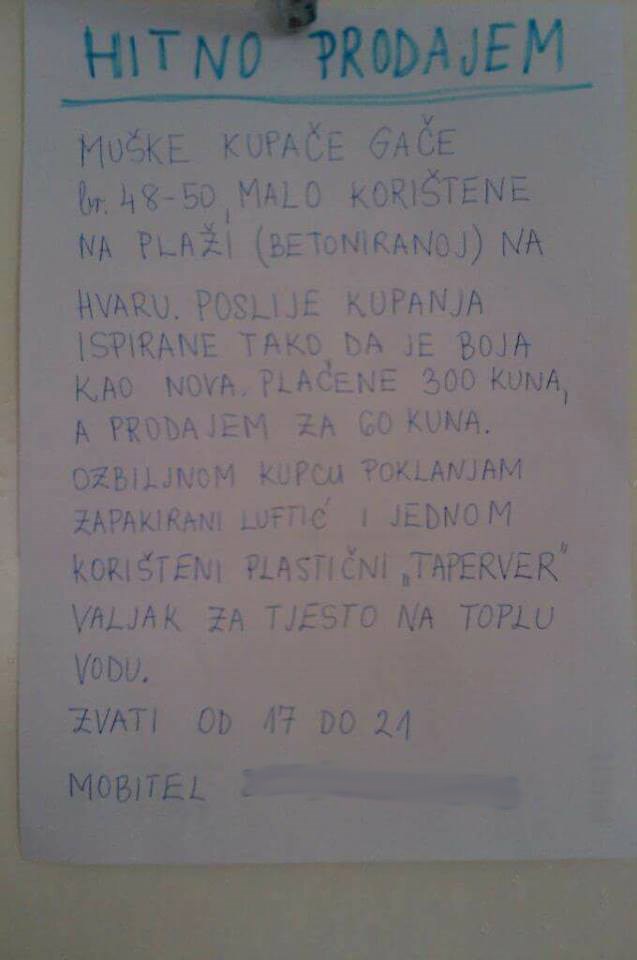 HITNO PRODAJEM
MUŠKE KUPAČE GAČE
br. 48-50, MALO KORIŠTENE
NA PLAŽI (BETONIRANOJ) NA
HVARU. POSLIJE KUPANJA
ISPIRANE TAKO DA JE BOJA
KAO NOVA. PLAČENE 300 KUNA,
A PRODAJEM ZA 60 KUNA.
OZBILJNOM KUPCU POKLANJAM
ZAPAKIRANI LUFTIĆ I JEDNOM
KORIŠTENI PLASTIČNI „TAPERVER"
VALJAK ZA TJESTO NA TOPLU
VODU.
ZVATI OD 17 DO 21
MOBITEL